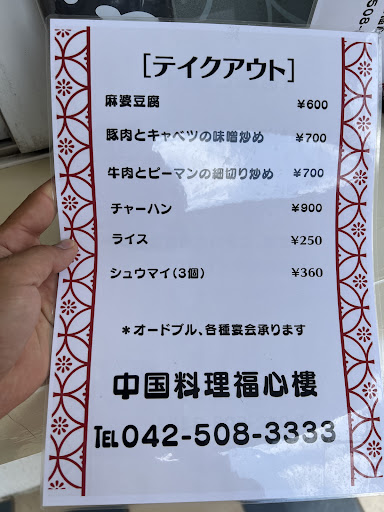 [テイクアウト]
麻婆豆腐 ¥600
豚肉とキャベツの味噌炒め ¥700
牛肉とピーマンの細切り炒め ¥700
チャーハン ¥900
ライス ¥250
シュウマイ(3個) ¥360
*オードブル、各種宴会承ります
中国料理福心樓
TEL042-508-3333